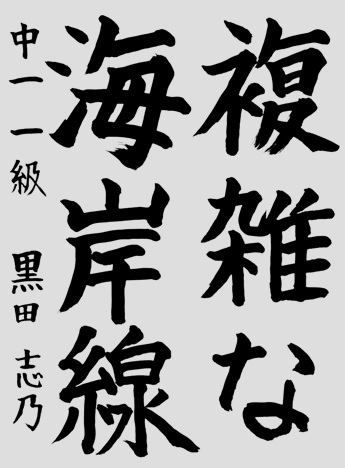 複雑な
海岸線
中一 一級 黒田 志乃